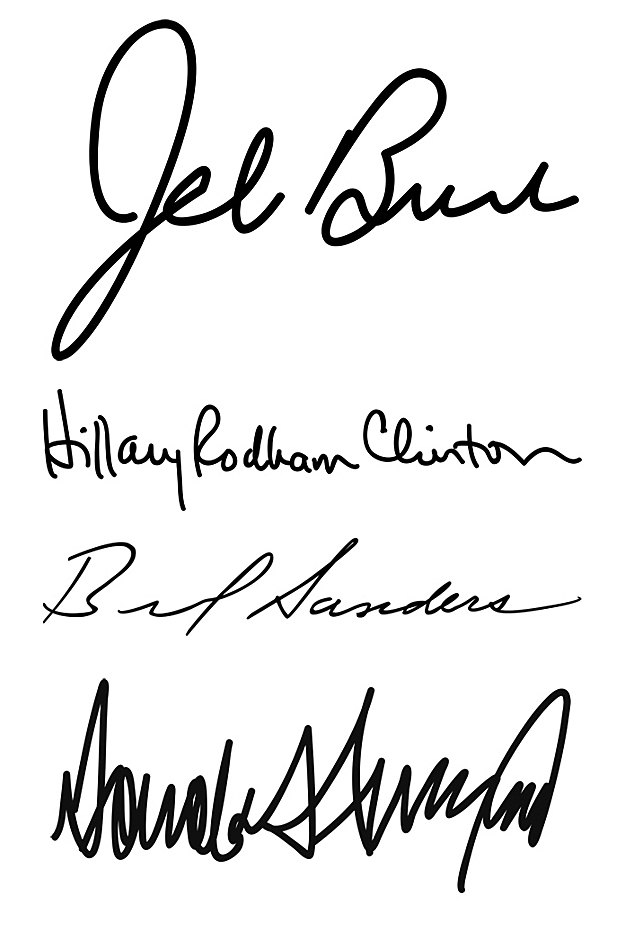 Jeb Bush
Hillary Rodham Clinton
Bernard Sanders
Donald Trump